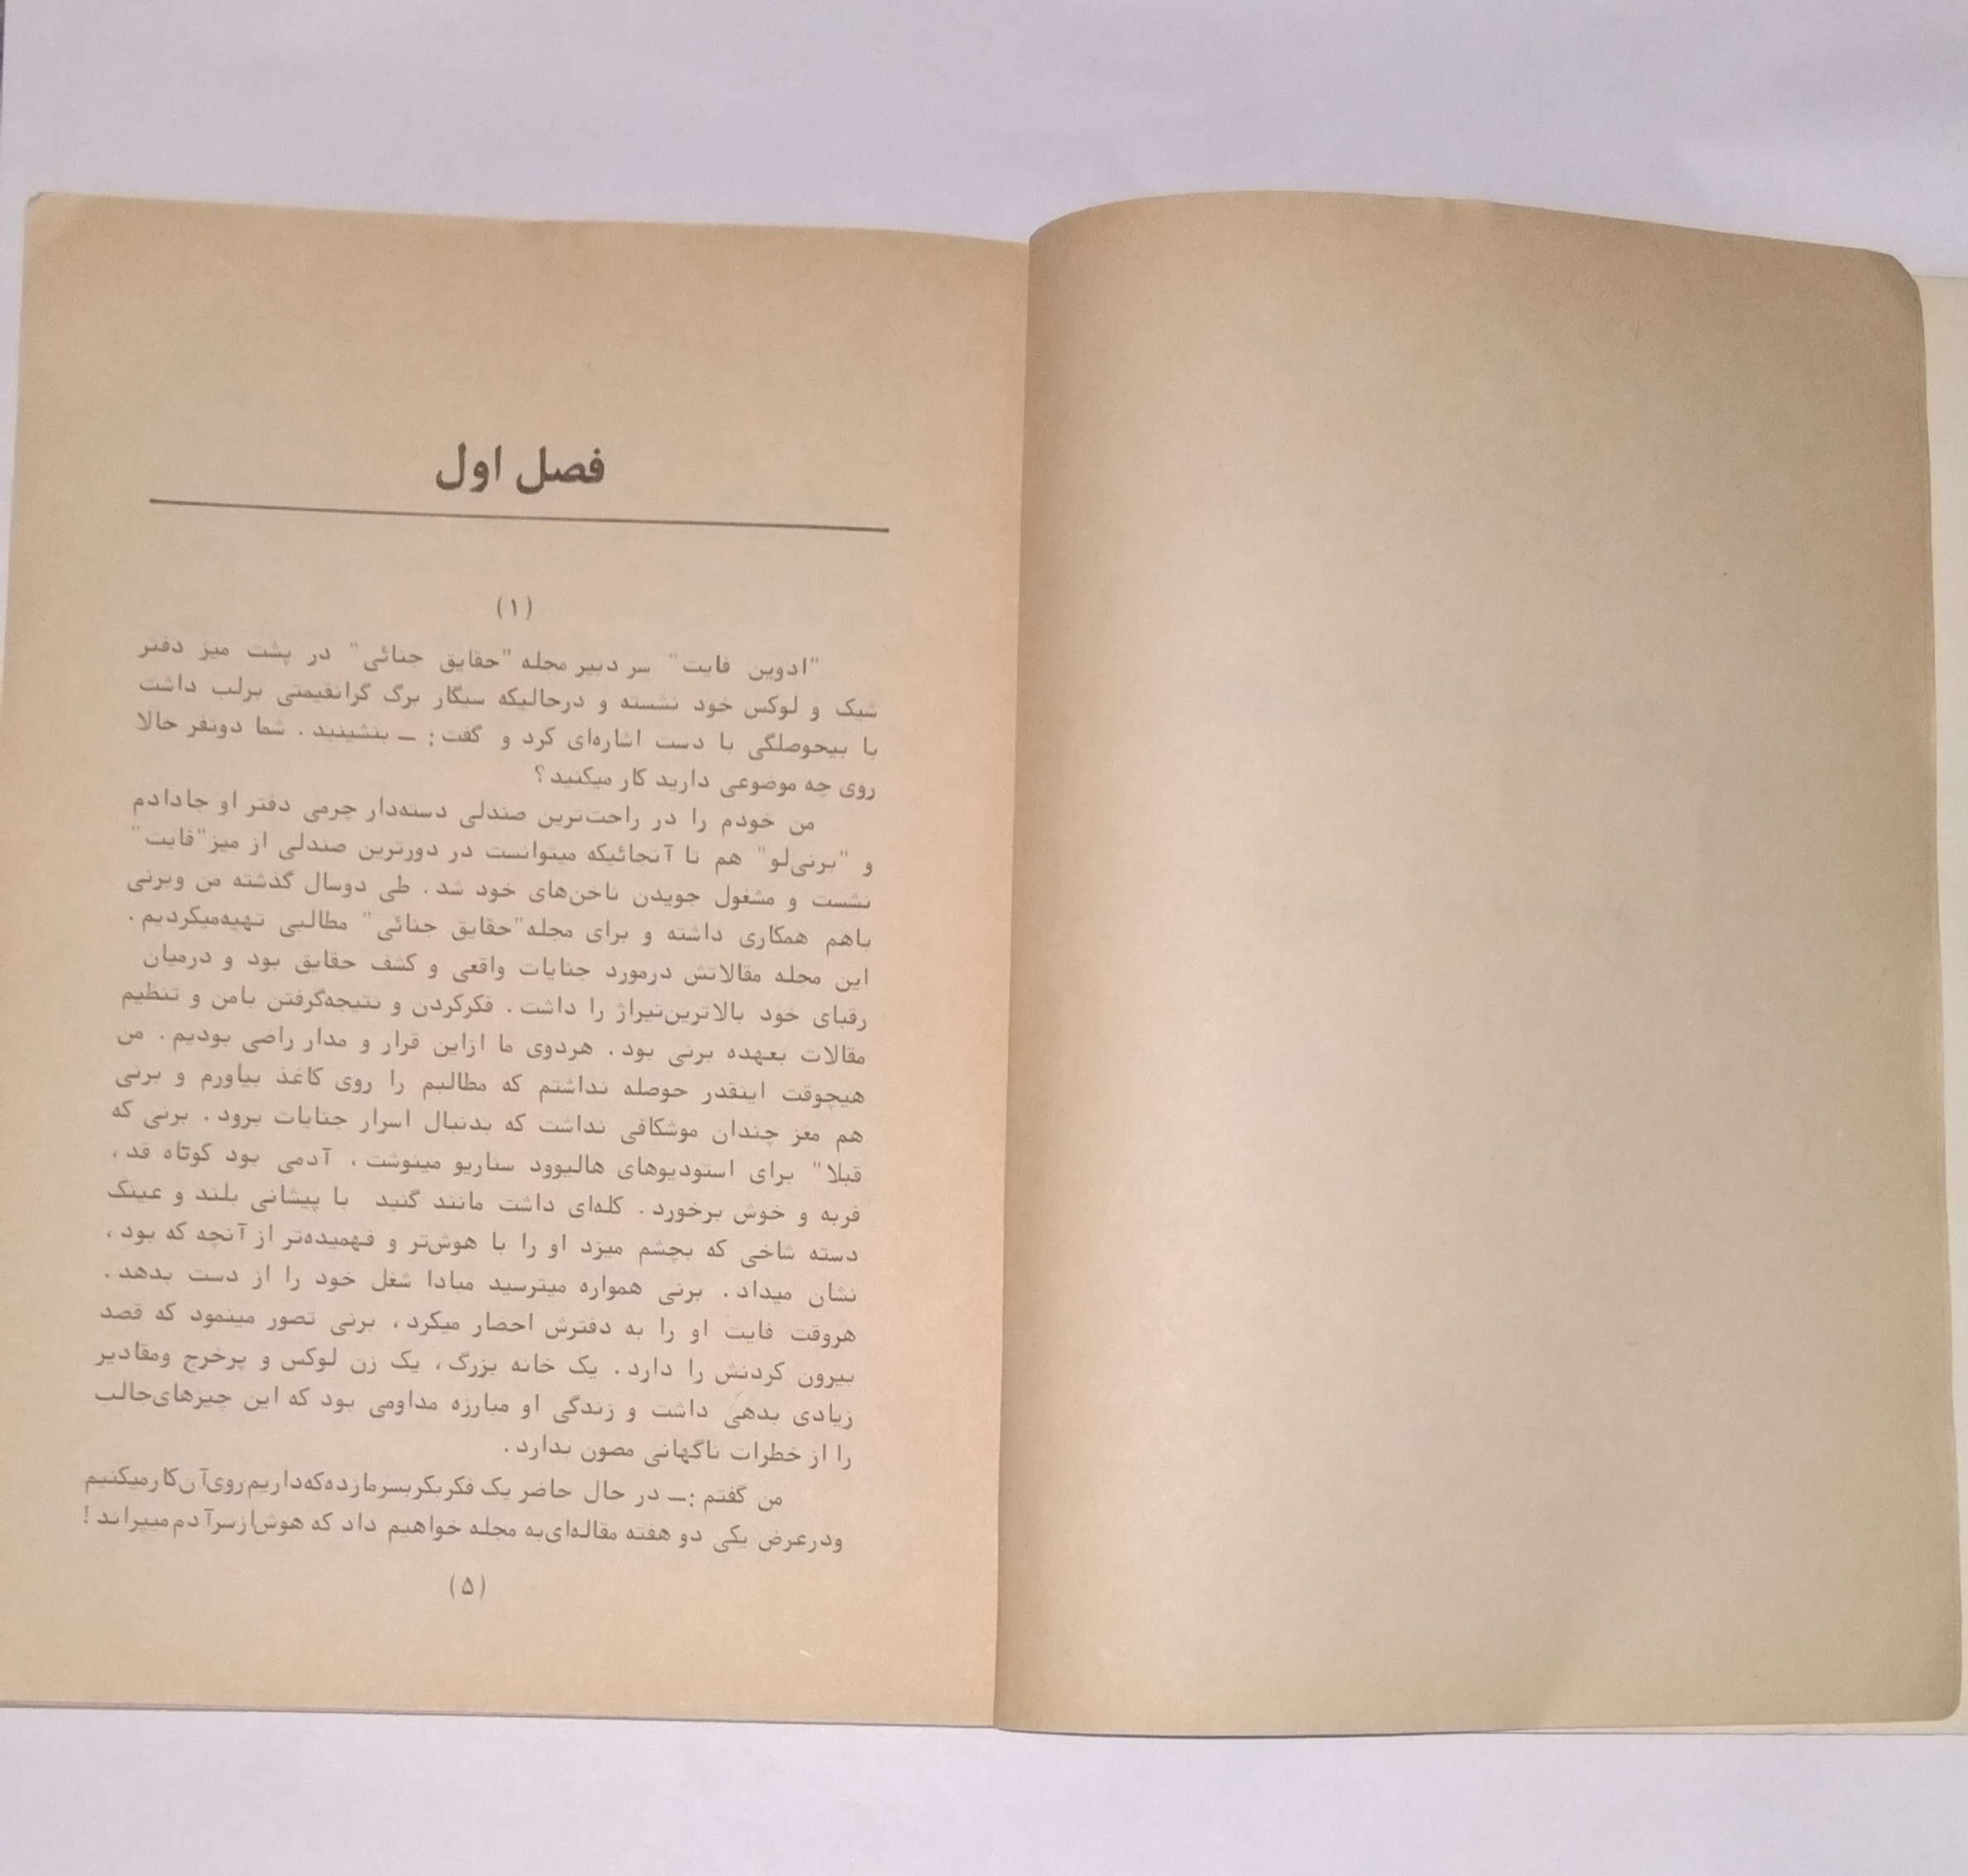 فصل اول
(۱)
"ادوین فایت" سر دبیر مجله "حقایق جنائی" در پشت میز دفتر
شیک و لوکس خود نشسته و درحالیکه سیگار برگ گرانقیمتی برلب داشت
با بیحوصلگی با دست اشاره‌ای کرد و گفت: ــ بنشینید. شما دونفر حالا
روی چه موضوعی دارید کار میکنید؟
من خودم را در راحت‌ترین صندلی دسته‌دار چرمی دفتر او جادادم
و "برنی‌لو" هم تا آنجائیکه میتوانست در دورترین صندلی از میز"فایت"
نشست و مشغول جویدن ناخن‌های خود شد. طی دوسال گذشته من وبرنی
باهم همکاری داشته و برای مجله"حقایق جنائی" مطالبی تهیه‌میکردیم.
این مجله مقالاتش درمورد جنایات واقعی و کشف حقایق بود و درمیان
رقبای خود بالاترین‌تیراژ را داشت. فکرکردن و نتیجه‌گرفتن بامن و تنظیم
مقالات بعهده برنی بود. هردوی ما ازاین قرار و مدار راضی بودیم. من
هیچوقت اینقدر حوصله نداشتم که مطالبم را روی کاغذ بیاورم و برنی
هم مغز چندان موشکافی نداشت که بدنبال اسرار جنایات برود. برنی که
قبلا" برای استودیوهای هالیوود سناریو مینوشت، آدمی بود کوتاه قد،
فربه و خوش برخورد. کله‌ای داشت مانند گنبد با پیشانی بلند و عینک
دسته شاخی که بچشم میزد او را با هوش‌تر و فهمیده‌تر از آنچه که بود،
نشان میداد. برنی همواره میترسید مبادا شغل خود را از دست بدهد.
هروقت فایت او را به دفترش احضار میکرد، برنی تصور مینمود که قصد
بیرون کردنش را دارد. یک خانه بزرگ، یک زن لوکس و پرخرج ومقادیر
زیادی بدهی داشت و زندگی او مبارزه مداومی بود که این چیزهای‌جالب
را از خطرات ناگهانی مصون بدارد.
من گفتم:ــ در حال حاضر یک فکربکربسرمازده‌که‌داریم‌روی‌آن‌کارمیکنیم
ودرعرض یکی دو هفته مقاله‌ای‌به مجله خواهیم داد که هوش‌ازسرآدم‌میپراند!
(۵)